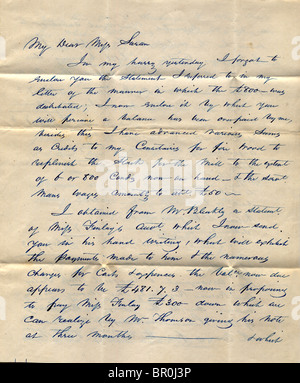 My Dear Miss Saran
In my hurry yesterday I forgot to
enclose you the Statement I referred to in my
letter of the manner in which the £800 - was
distributed; I now enclose it by which you
will perceive a Balance has been overpaid by me,
besides this I have advanced various Sums
as Credits to my Constiaries for Fire Wood to
replenish the Stock for the Mill to the extent
of 6 or 800 Cords now on hand - & the
mans wages
I obtained from Mr. a Statement
of Miss Finlay's Acct. which I now send
you in his hand Writing, which will exhibit
the payments made to him & the numerous
charges for Cash & expences the Balce now due
appears to be £481.7.3 - now in proposing
to pay Miss Finlay £300 down which we
can realize by Mr Thomson giving his note
at three months
& which
alamy
BR0J3P